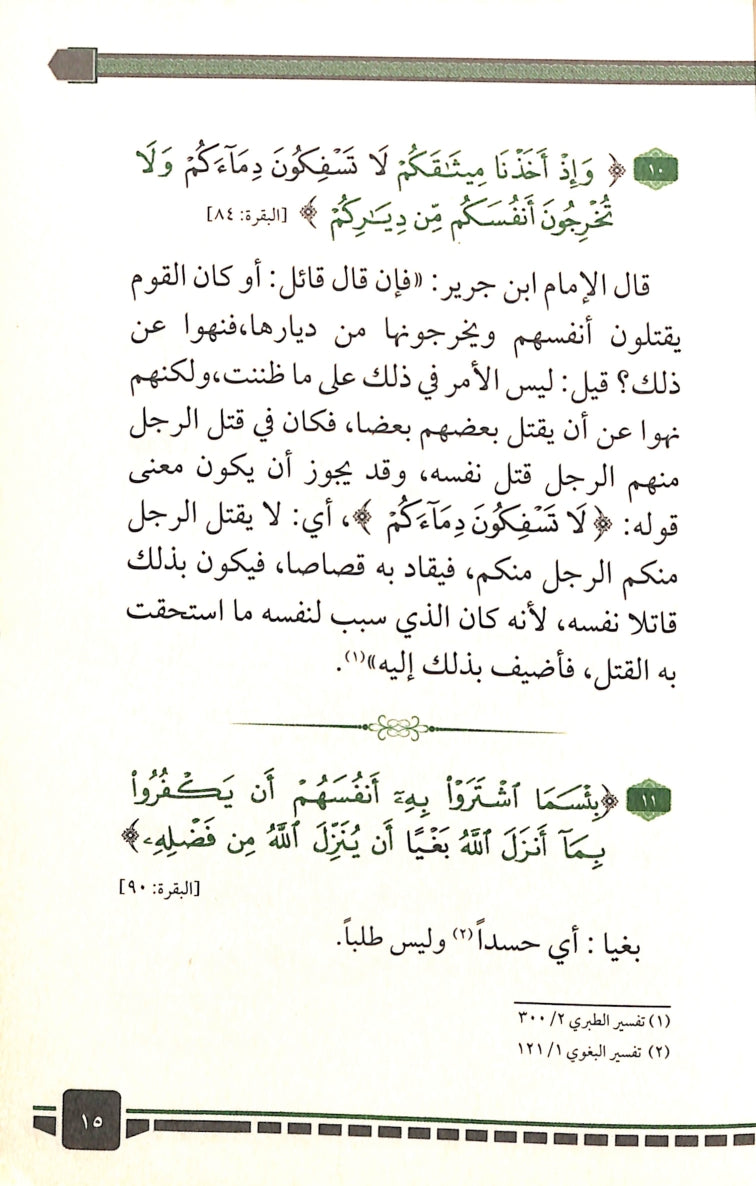 ١٠ ﴿ وَإِذْ أَخَذْنَا مِيثَـٰقَكُمْ لَا تَسْفِكُونَ دِمَآءَكُمْ وَلَا
تُخْرِجُونَ أَنفُسَكُم مِّن دِيَـٰرِكُمْ ﴾ [البقرة: ٨٤]
قال الإمام ابن جرير: «فإن قال قائل: أو كان القوم
يقتلون أنفسهم ويخرجونها من ديارها،فنهوا عن
ذلك؟ قيل: ليس الأمر في ذلك على ما ظننت،ولكنهم
نهوا عن أن يقتل بعضهم بعضا، فكان في قتل الرجل
منهم الرجل قتل نفسه، وقد يجوز أن يكون معنى
قوله: ﴿ لَا تَسْفِكُونَ دِمَآءَكُمْ ﴾، أي: لا يقتل الرجل
منكم الرجل منكم، فيقاد به قصاصا، فيكون بذلك
قاتلا نفسه، لأنه كان الذي سبب لنفسه ما استحقت
به القتل، فأضيف بذلك إليه»(١).
١١ ﴿بِئْسَمَا ٱشْتَرَوْا۟ بِهِۦٓ أَنفُسَهُمْ أَن يَكْفُرُوا۟
بِمَآ أَنزَلَ ٱللَّهُ بَغْيًا أَن يُنَزِّلَ ٱللَّهُ مِن فَضْلِهِۦ﴾
[البقرة: ٩٠]
بغيا : أي حسداً(٢) وليس طلباً.
(١) تفسير الطبري ٢/ ٣٠٠
(٢) تفسير البغوي ١/ ١٢١
١٥